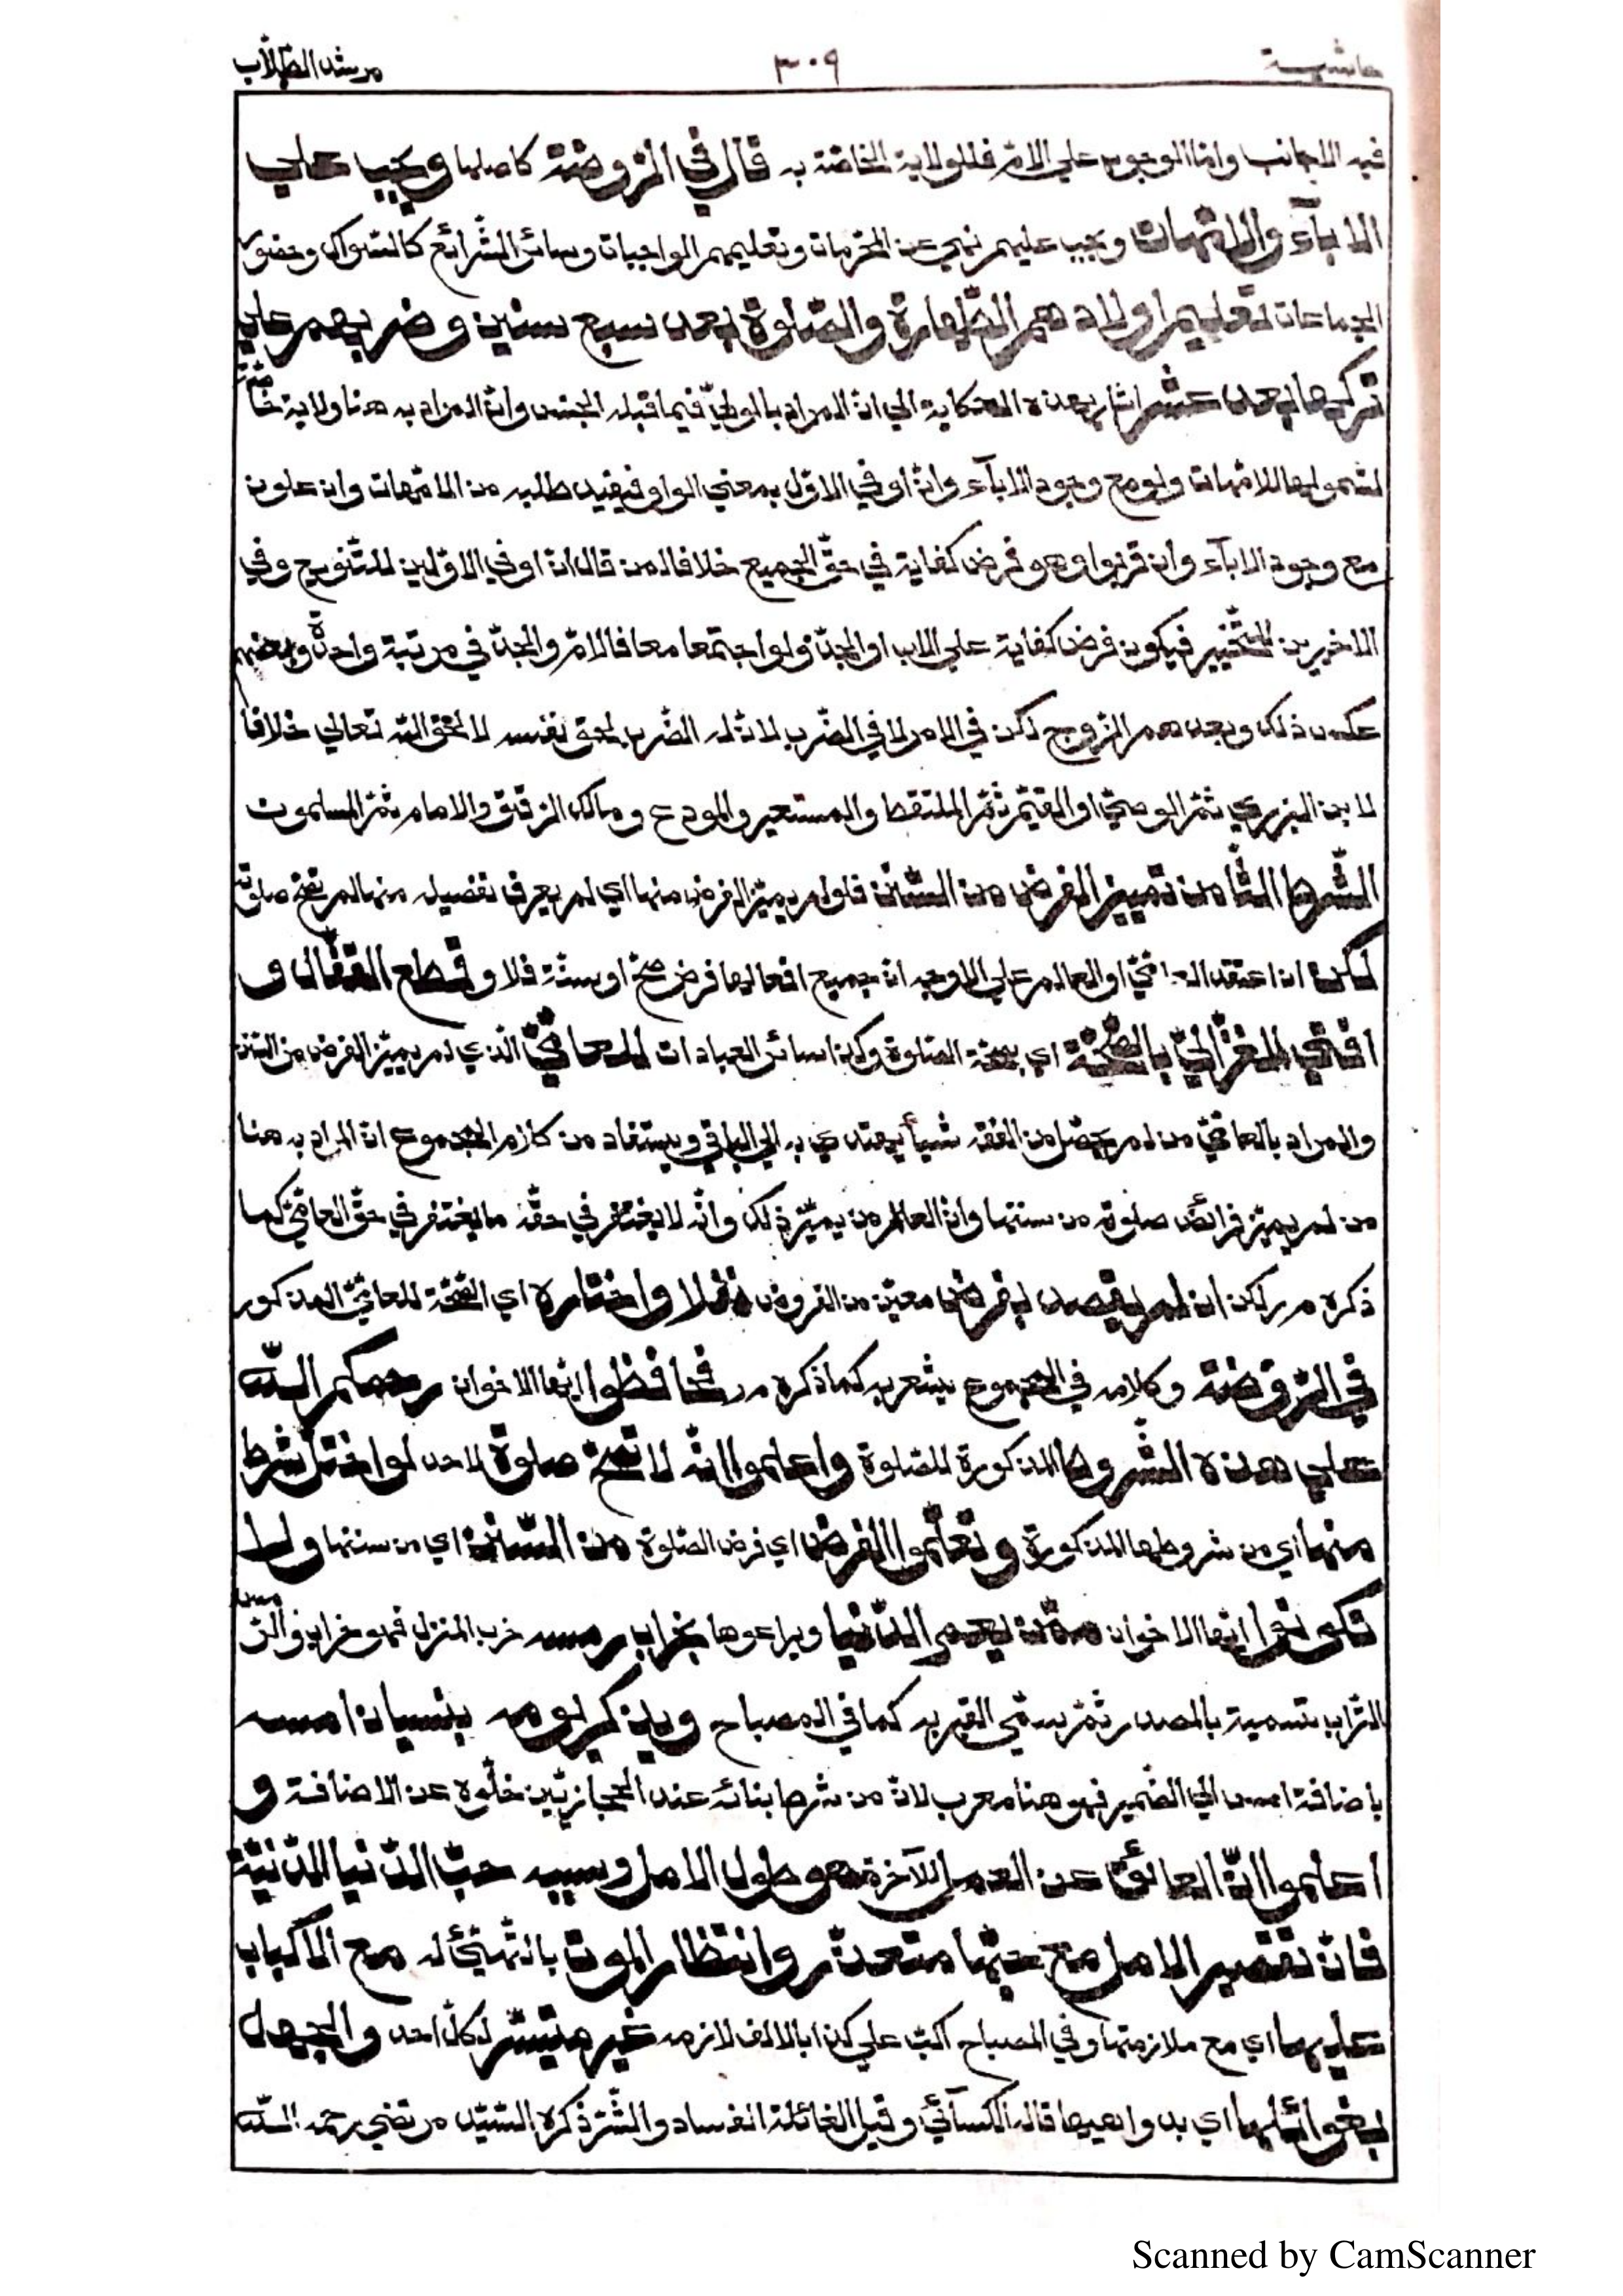 حاشية ٣٠٩ مرشد الطّلّاب
فيه الاجانب وامّا الوجوب على الامّ فللولاية الخاصّة به قال في الروضة كاصلها ويجب على
الاٰبآء والامّهات ويجب عليهم نهي عن المحرّمات وتعليمهم الواجبات وسائر الشّرائع كالسّواك وحضور
الجماعات تعليم اولادهم الطّهارة والصّلوة بعد سبع سنين وضربهم على
تركها بعد عشر اشار بهذه الحكاية الى انّ المراد بالوليّ فيما قبله الجنس وانّ المراد به هنا ولاية خاصّة
لشمولها للامّهات ولو مع وجود الاٰبآء وانّ او في الاوّل بمعنى الواو فيفيد طلبه من الامّهات وان علون
مع وجود الاٰبآء وان قربوا وهو فرض كفاية في حقّ الجميع خلافا لمن قال انّ او في الاوّلين للتّنويع وفي
الاخيرين للتّخيير فيكون فرض كفاية على الاب او الجدّ ولو اجتمعا معا فالامّ والجدّ في مرتبة واحدة وبعضهم
عكس ذلك وبعدهم الزّوج لكن في الامر لا في الضّرب لانّ له الضّرب لحقّ نفسه لا لحقّ اللّه تعالى خلافا
لابن البزري ثمّ الوصيّ او القيّم ثمّ الملتقط والمستعير والمودع ومالك الرّقيق والامام ثمّ المسلمون
الشّرط الثّامن تمييز الفرض من السّنن فلو لم يميّز الفرض منها اي لم يعرف تفصيله منها لم تصحّ صلوته
لكن ان اعتقد العامّيّ او العالم على الاوجه انّ جميع افعالها فرض صحّ او سنّة فلا وقطع القفّال و
افتى الغزاليّ بالصّحّة اي بصحّة الصّلوة وكذا سائر العبادات للعامّيّ الّذي لم يميّز الفرض من السّنن
والمراد بالعامّيّ من لم يحصّل من الفقه شيأ يهتدي به الى الباقي ويستفاد من كلام المجموع انّ المراد به هنا
من لم يميّز فرائض صلوته من سننها وانّ العالم من يميّز ذلك وانّه لا يغتفر في حقّه ما يغتفر في حقّ العامّيّ كما
ذكره م ر لكن ان لم يقصد بفرض معيّن من الفروض نفلا واختاره اي الصّحّة للعامّيّ المذكور
في الرّوضة وكلامه في المجموع يشعر به كما ذكره م ر فحافظوا ايّها الاخوان رحمكم اللّه
على هذه الشّروط المذكورة للصّلوة واعلموا انّه لا تصحّ صلوة لاحد لو اختلّ شرط
منها اي من شروطها المذكورة وتعلّموا الفرض اي فرض الصّلوة من السّنن اي من سننها ولا
تكونوا ايّها الاخوان ممّن يعمر الدّنيا ويراعوها بخراب رمسه خرب المنزل فهو خراب والرّمس
التّراب تسمية بالمصدر ثمّ سمّي القبر به كما في المصباح ويذكر يومه بنسيان امسه
باضافة امس الى الضّمير فهو هنا معرب لانّ من شرط بنائه عند الحجازيّين خلّوه عن الاضافة و
اعلموا انّ العائق عن العمل للاٰخرة هو طول الامل وسببه حبّ الدّنيا الدّنيّة
فانّ تقصير الامل مع حبّها متعذّر وانتظار الموت بالتّهيّئ له مع الاكباب
عليها اي مع ملازمتها وفي المصباح اكبّ على كذا بالالف لازمه غير متيسّر لكلّ احد والجهل
بغوائلها اي بدواهيها قاله الكسآئيّ وقيل الغائلة الفساد والشّرّ ذكره السّيّد مرتضى رحمه اللّه
Scanned by CamScanner